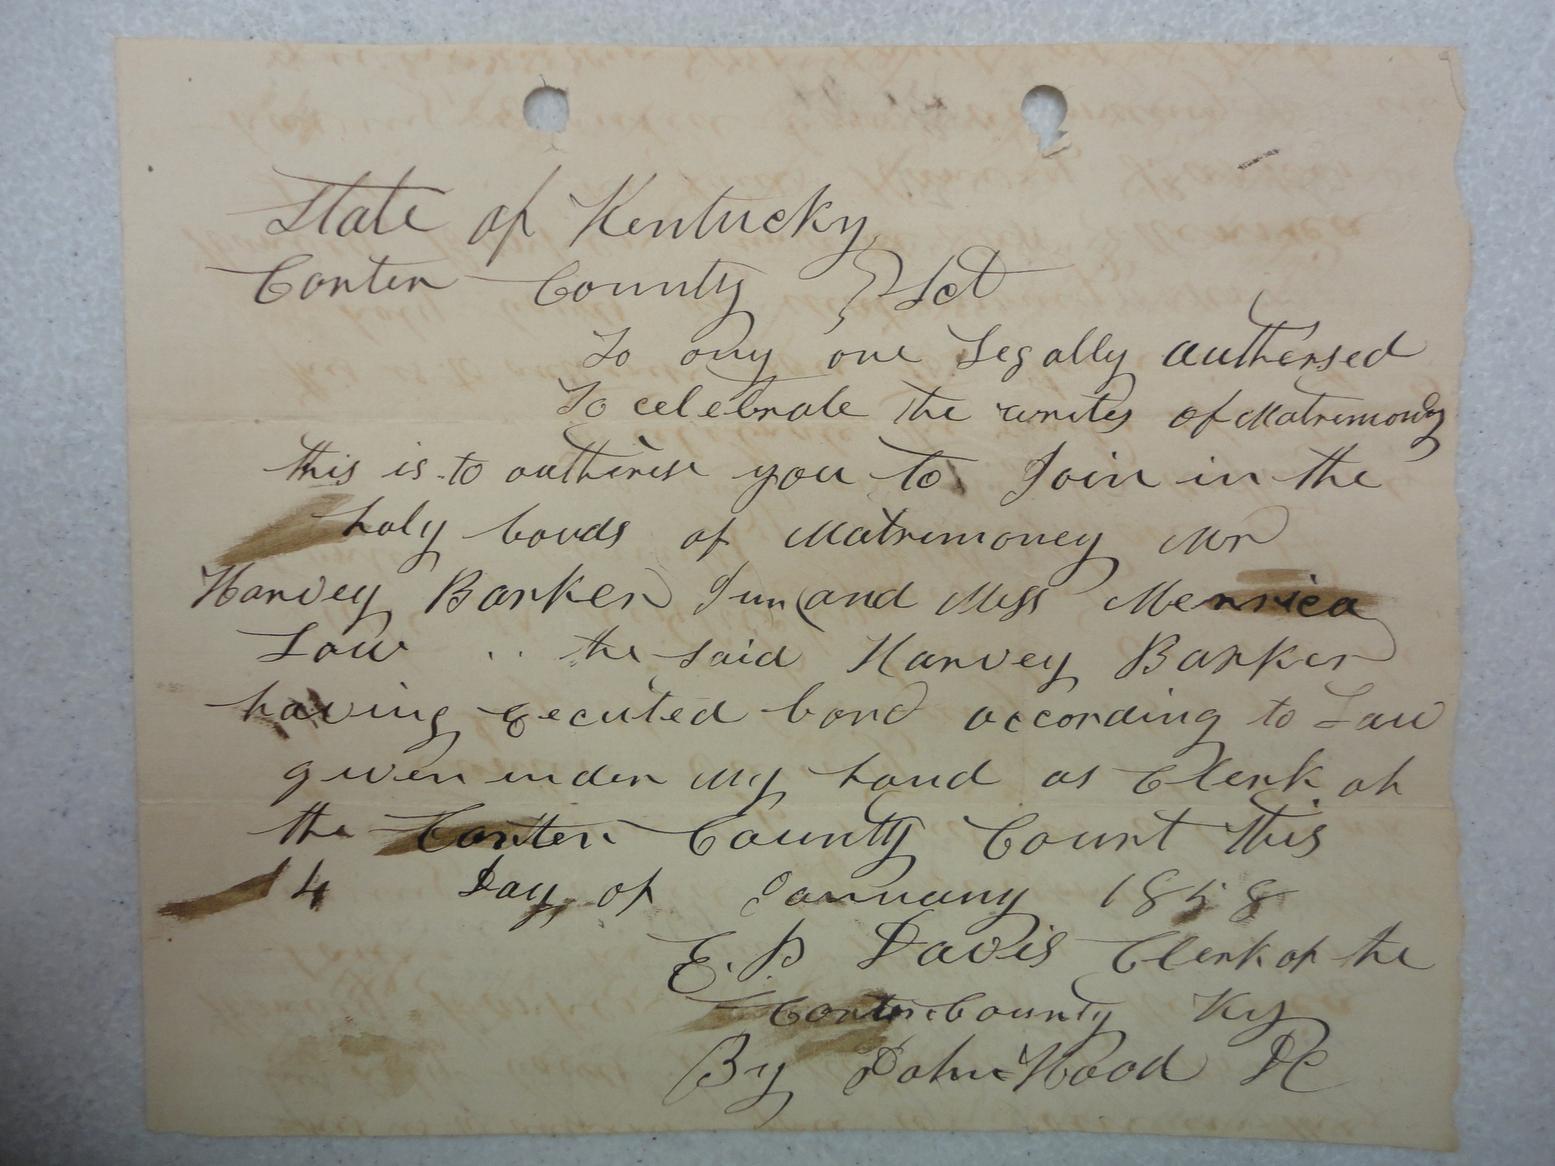 State of Kentucky
Carter County } Sct
To any one Legally authersed
To celebrate the writes of Matrimony
this is to autherise you to Join in the
holy bonds of Matrimoney Mr
Harvey Barker Jun and Miss
Law .. the said Harvey Barker
having executed bond according to Law
given under My hand as Clerk of
the Carter County Court this
14 Day of January 1858
E. D Davis Clerk of the
Carter County Ky
By John Hood DC